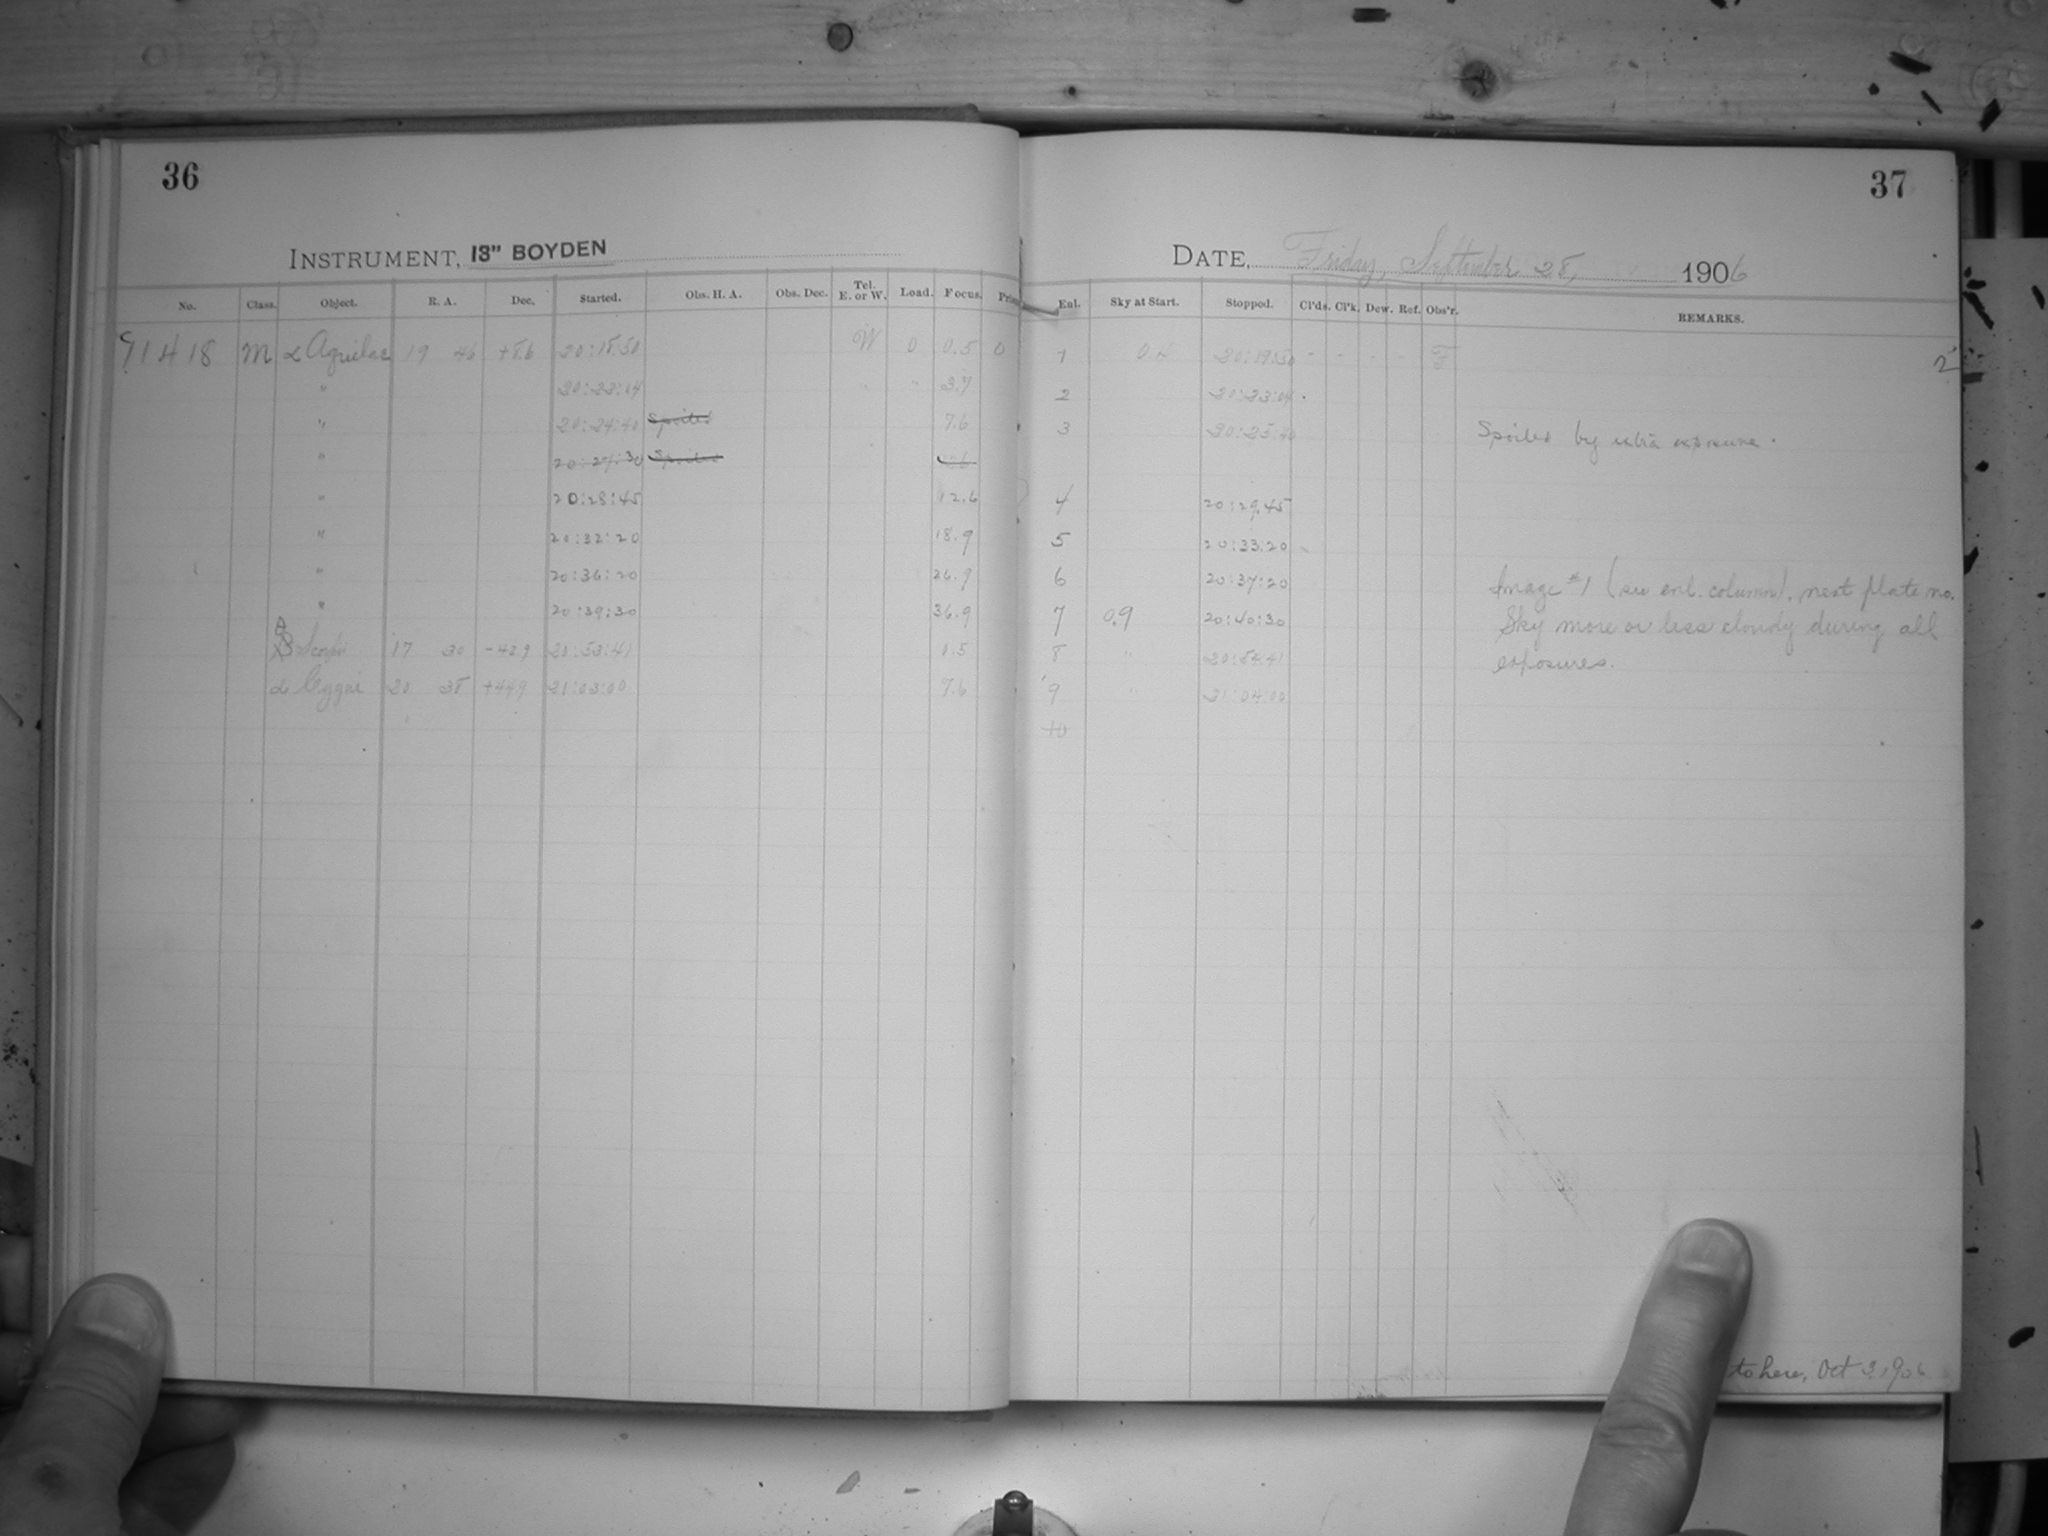 36
37
INSTRUMENT, 13" BOYDEN
DATE, Friday, September 28, 1906
No. Class. Object. R. A. Dec. Started. Obs. H. A. Obs. Dec. Tel. E. or W. Load. Focus.
Enl. Sky at Start. Stopped. Cl'ds. Cl'k. Dew. Ref. Obs'r. REMARKS.
91418 M α Aquilae 19 46 +8.6 20:18:50 W 0 0.5 0 1 20:19:50 - - - - F 2
" 20:22:04 " " 3.7 2 20:23:04
" 20:24:40 Spoiled 7.6 3 20:25:40 Spoiled by extra exposure.
" 20:27:30 Spoiled
" 20:28:45 12.6 4 20:29:45
" 20:32:20 18.9 5 20:33:20
" 20:36:20 26.9 6 20:37:20 Image #1 (see enl. column), next plate no.
" 20:39:30 36.9 7 0.9 20:40:30 Sky more or less cloudy during all
Scorpii 17 30 -42.9 20:53:41 0.5 8 " 20:54:41 exposures.
α Cygni 20 38 +44.9 21:03:00 7.6 9 " 21:04:00
10
to here, Oct 2, 1906